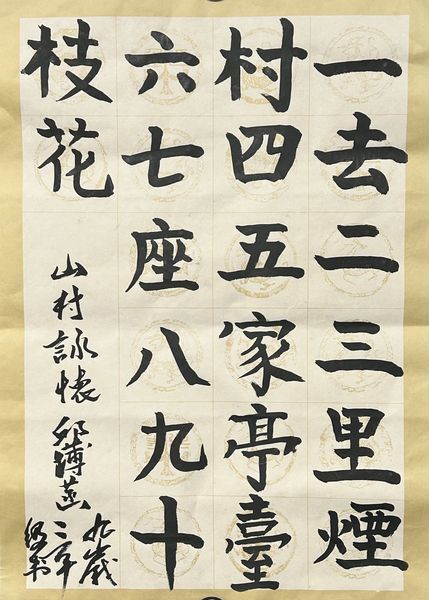 一去二三里煙
村四五家亭臺
六七座八九十
枝花
山村詠懷
九歲
二年
級書